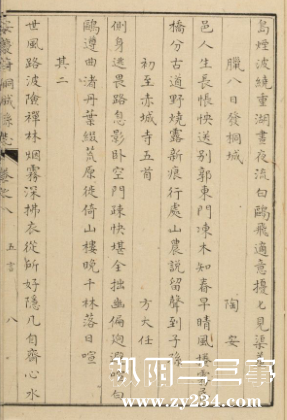 島煙波繞重湖晝夜流白鷗飛適意擾擾見渠羞
臘八日發桐城　陶安
邑人生長帳怏送別郭東門凍木知春早晴風損雪
橋分古道野燒露新痕行處山農說留聲到子孫
初至赤城寺五首　方大任
側身逃畏路息影臥空門疎快堪全拙幽偏迥避喧白
鷗遵曲渚丹葉綴荒原徒倚山樓晚千林落日喧
其二
世風路波險禪林烟霧深拂衣從所好隱几自齊心水
五言
八
枞阳二三事
www.zy234.com